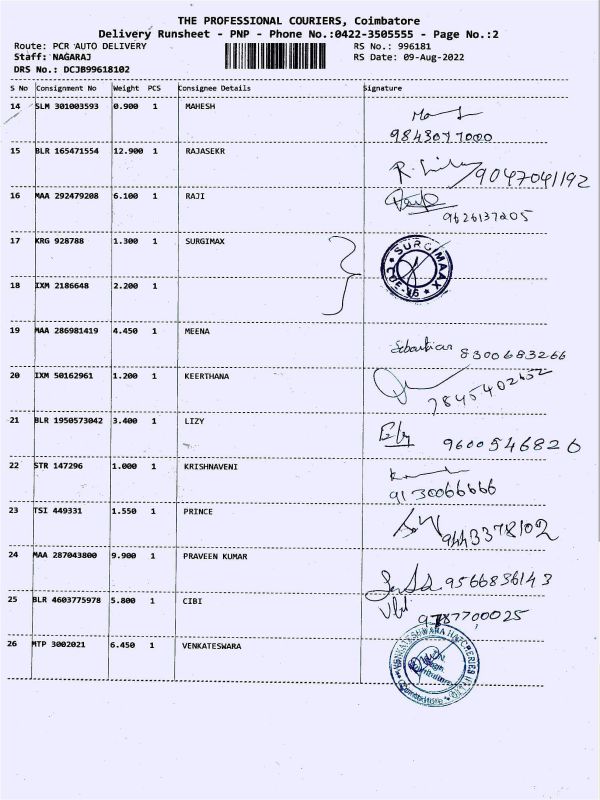 THE PROFESSIONAL COURIERS, Coimbatore
Delivery Runsheet - PNP - Phone No.:0422-3505555 - Page No.:2
Route: PCR AUTO DELIVERY RS No.: 996181
Staff: NAGARAJ RS Date: 09-Aug-2022
DRS No.: DCJB99618102
S No Consignment No Weight PCS Consignee Details Signature
14 SLM 301003593 0.900 1 MAHESH
9843077000
15 BLR 165471554 12.900 1 RAJASEKR
9047041192
16 MAA 292479208 6.100 1 RAJI
9626137205
17 KRG 928788 1.300 1 SURGIMAX
SURGIMAAX
CBE-45
18 IXM 2186648 2.200 1
19 MAA 286981419 4.450 1 MEENA
Sebastian 8300683266
20 IXM 50162961 1.200 1 KEERTHANA
7845402652
21 BLR 1950573042 3.400 1 LIZY
9600546826
22 STR 147296 1.000 1 KRISHNAVENI
9130066666
23 TSI 449331 1.550 1 PRINCE
9443378102
24 MAA 287043800 9.900 1 PRAVEEN KUMAR
9566836143
25 BLR 4603775978 5.800 1 CIBI
9787700025
26 MTP 3002021 6.450 1 VENKATESWARA
VENKATESHWARA HATCHERIES